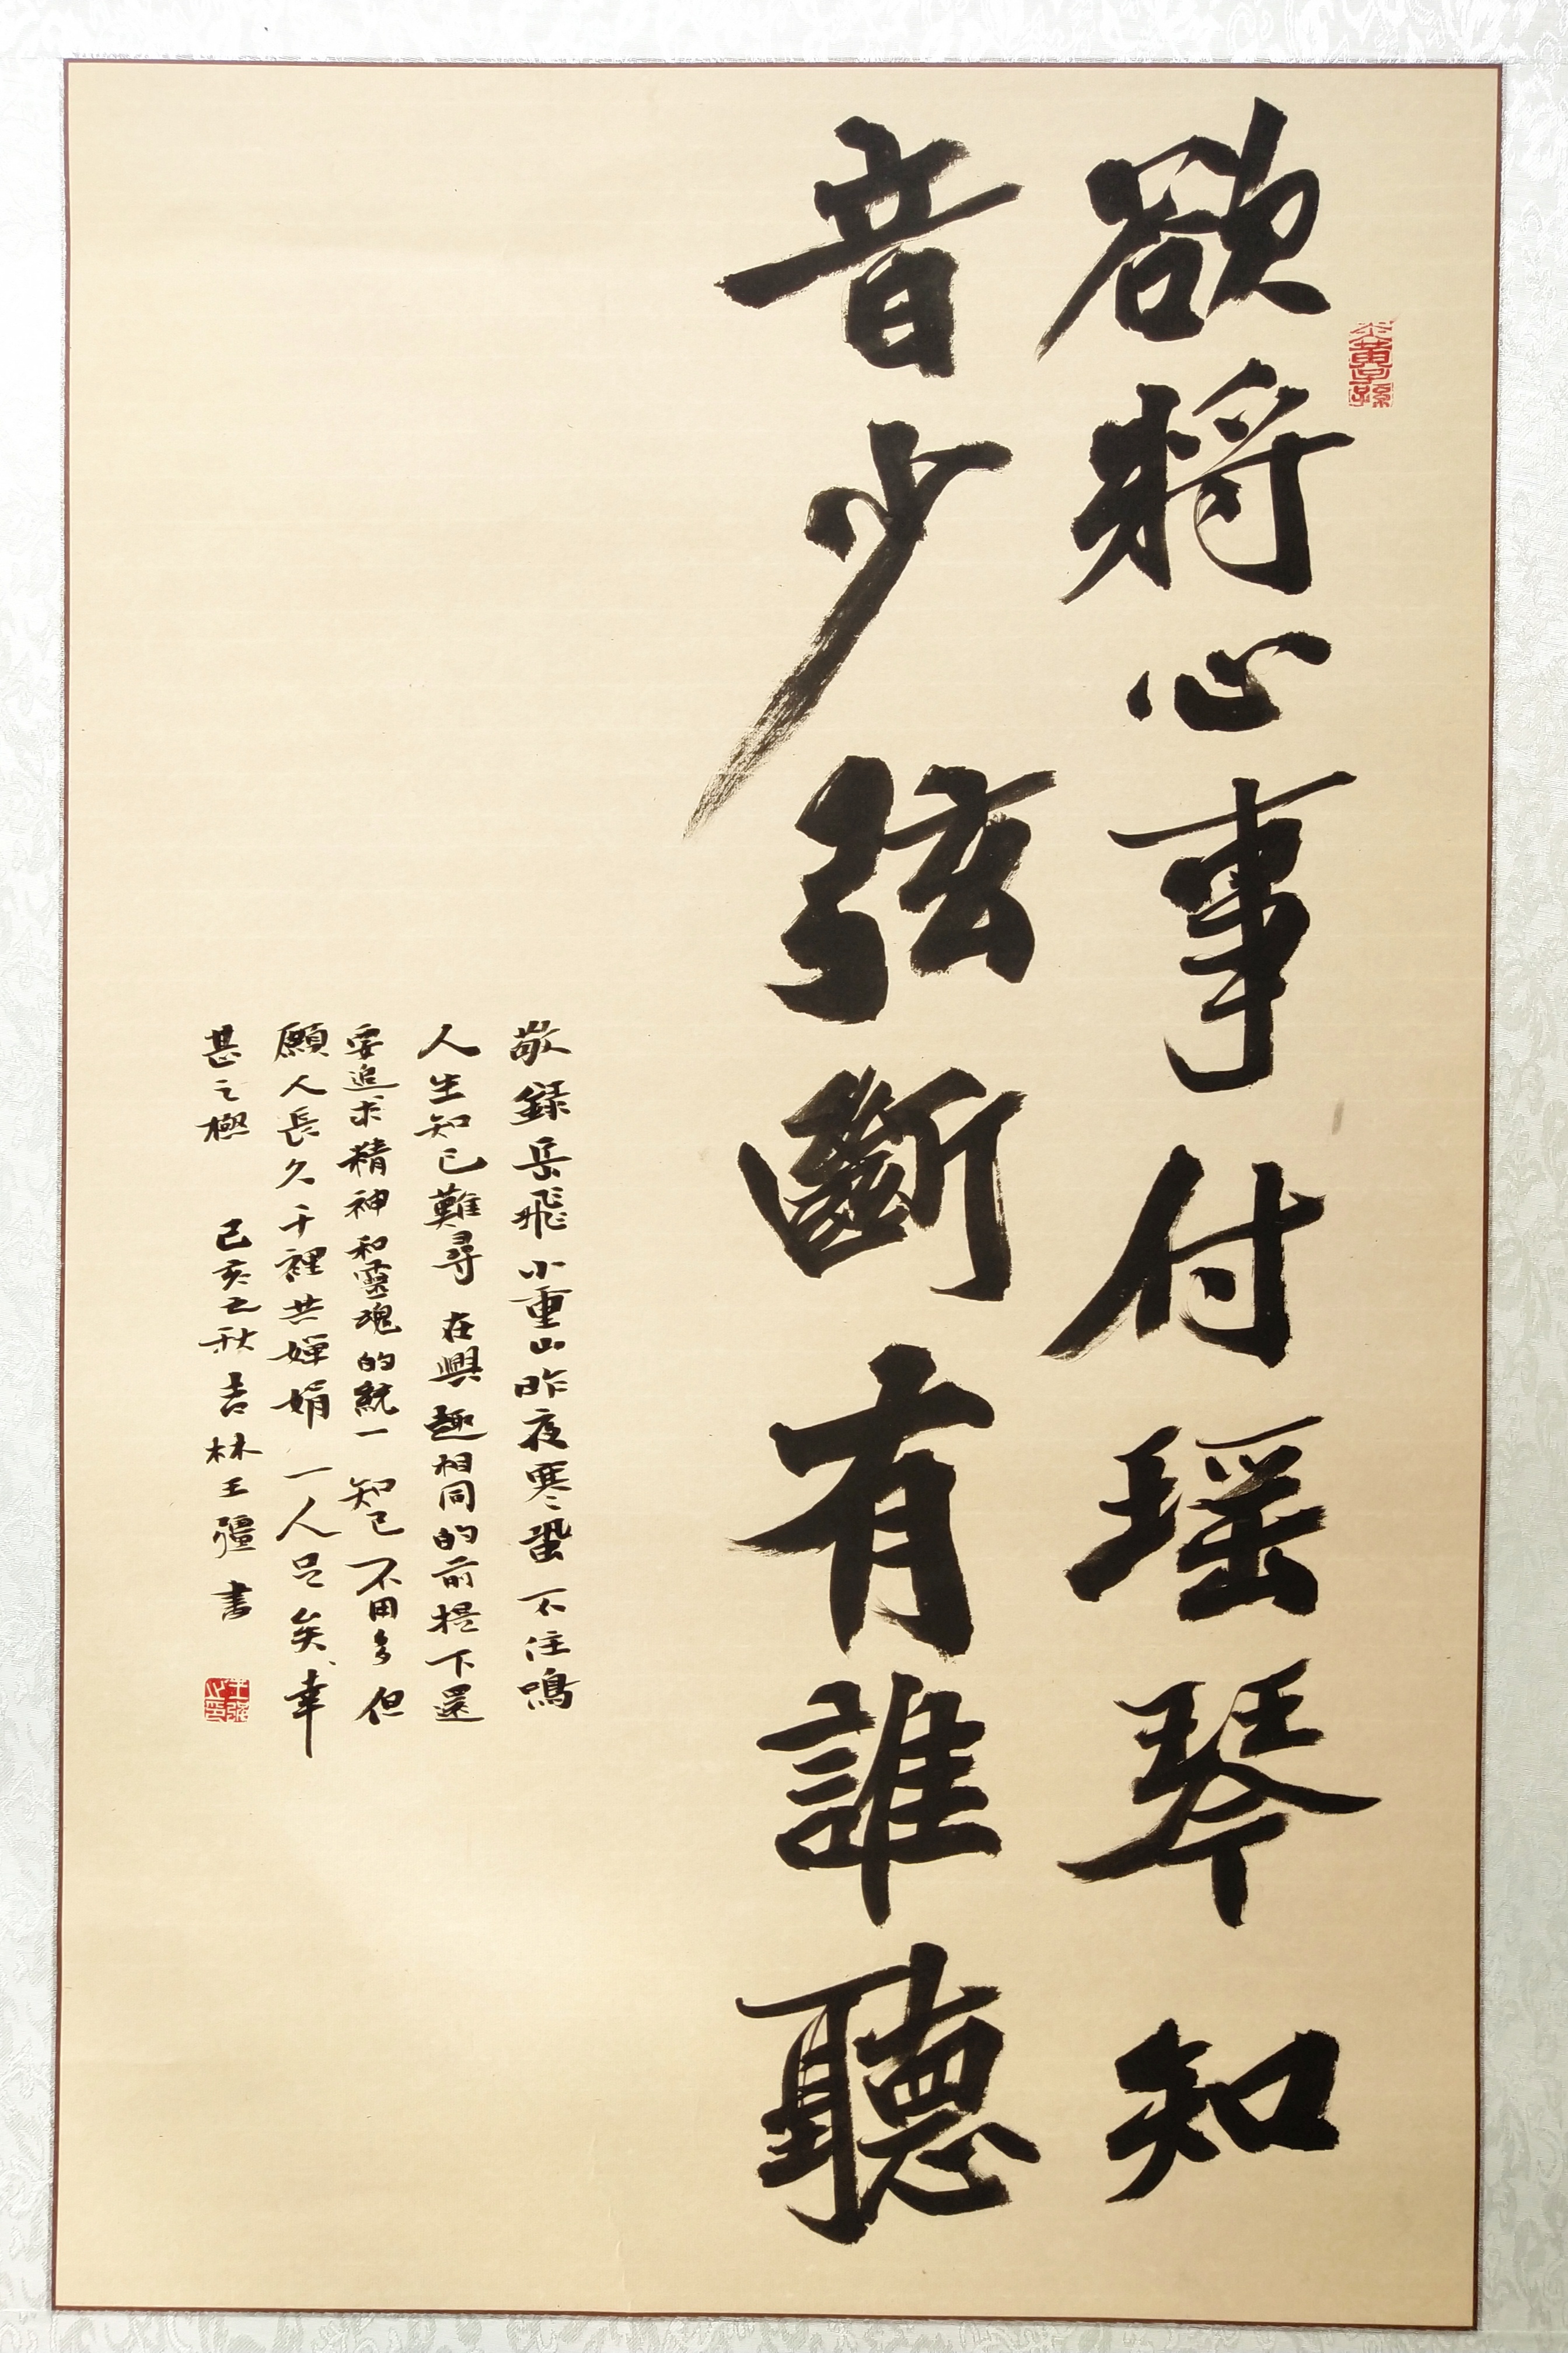 欲將心事付瑶琴知
音少弦斷有誰聽
敬録岳飛小重山昨夜寒蛩不住鳴
人生知己難尋在興趣相同的前提下還
要追求精神和靈魂的統一知己不用多但
願人長久千裡共嬋娟一人足矣幸
甚之極 己亥之秋吉林王彊書
炎黄子孫
王彊之印